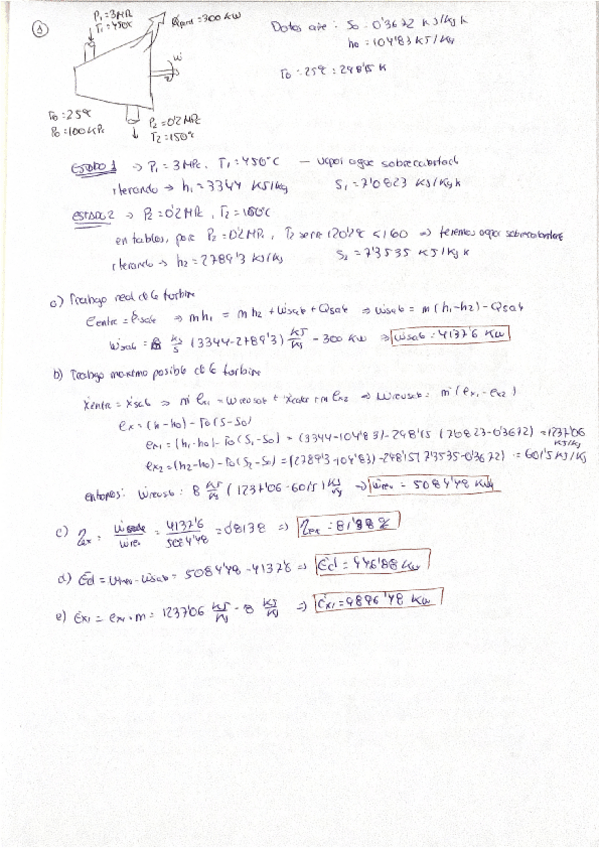 ①
P₁=3MPa
T₁=450ºC
Qperd=300 kW
Ẇ
T0=25ºC
P0=100KPa
P2=0'2 MPa
T2=150ºC
Datos aire: S0=0'3672 KJ/Kg K
h0=104'83 KJ/Kg
T0=25ºC=298'15 K
ESTADO 1 → P1=3MPa, T1=450ºC — vapor agua sobrecalentado
iterando → h1=3344 KJ/Kg S1=7'0823 KJ/Kg K
ESTADO 2 → P2=0'2MPa, T2=160ºC
en tablas, para P2=0'2MPa, T2 seria 120'2ºC<160 ⇒ tenemos vapor sobrecalentado
iterando → h2=2789'3 KJ/Kg S2=7'3535 KJ/Kg K
a) Trabajo real de la turbina
Eentra=Esale ⇒ mh1=mh2+Ẇsale+Qsale ⇒ Ẇsale=m(h1-h2)-Qsale
Ẇsale=8 Kg/s (3344-2789'3) KJ/Kg -300 KW ⇒ Ẇsale=4137'6 KW
b) Trabajo maximo posible de la turbina
Ẋentra=Ẋsale ⇒ ṁex1=Ẇrevsale+Ẋcalor+mex2 ⇒ Ẇrevsale=ṁ(ex1-ex2)
ex=(h-h0)-T0(S-S0)
ex1=(h1-h0)-T0(S1-S0)=(3344-104'83)-298'15(7'0823-0'3672)=1237'06 KJ/Kg
ex2=(h2-h0)-T0(S2-S0)=(2789'3-104'83)-298'15(7'3535-0'3672)=601'5 KJ/Kg
entonces: Ẇrevsale=8 Kg/s (1237'06-601'5) KJ/Kg ⇒ Ẇrev=5084'48 KW
c) ηex=Ẇsale/Ẇrev=4137'6/5084'48=0'8138 ⇒ ηex=81'38%
d) Ėd=Ẇrev-Ẇsale=5084'48-4137'6 ⇒ Ėd=946'88 KW
e) Ėx1=ex1·m=1237'06 KJ/Kg · 8 Kg/s ⇒ Ėx1=9896'48 KW